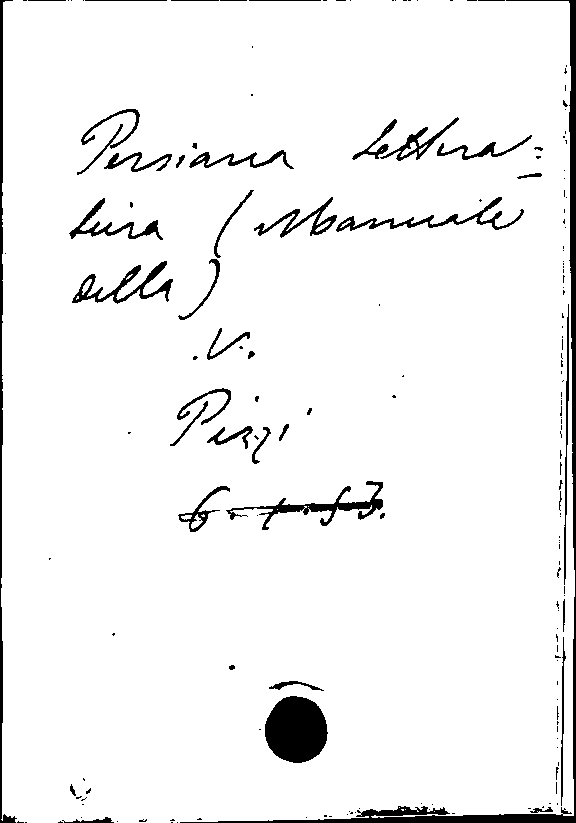 Persiana Lettera=
tura (Manuale
della)
.V.
Pizzi
6. 1. 53.